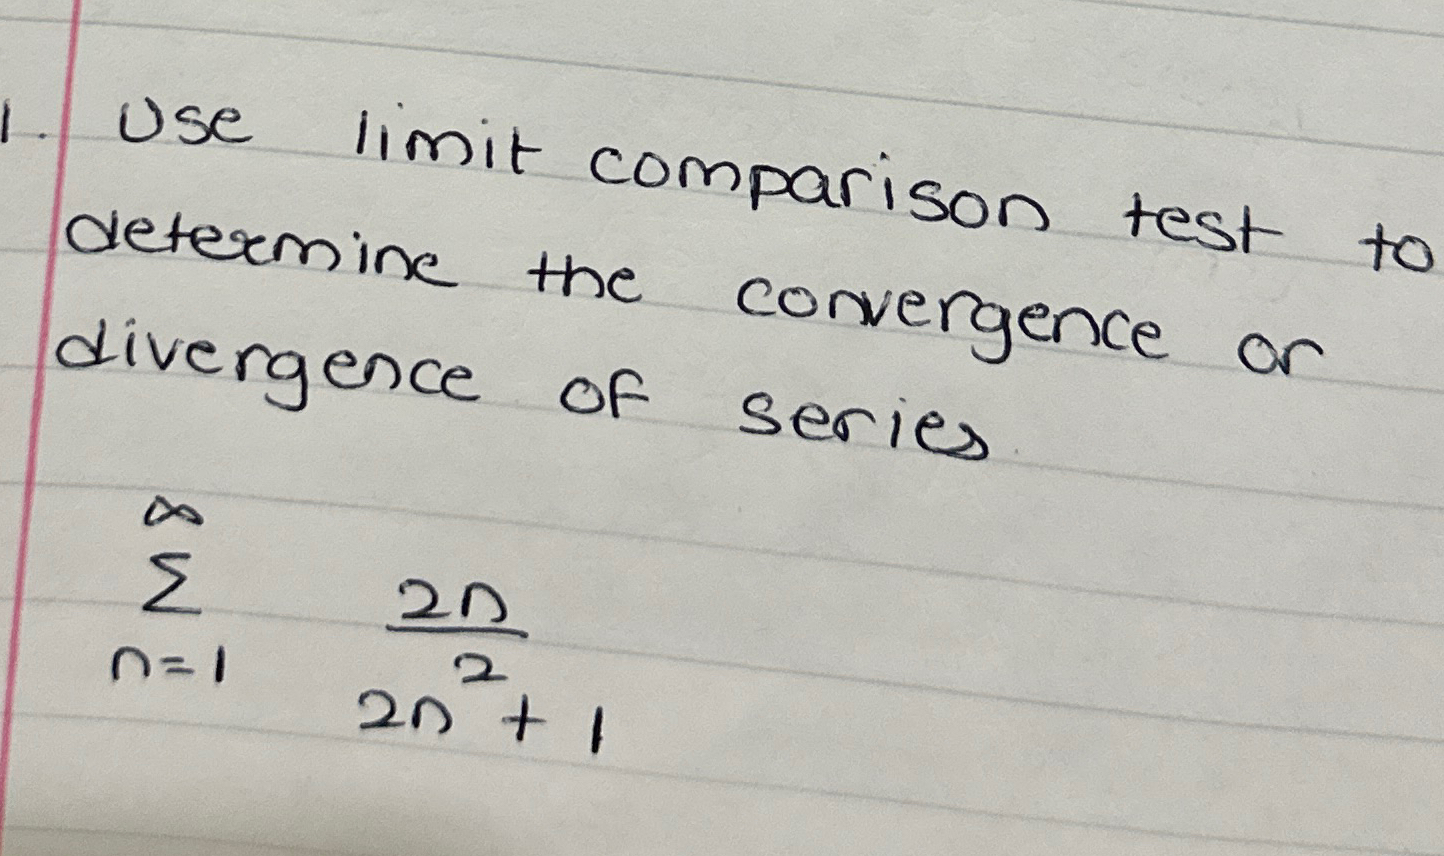 1. Use limit comparison test to
determine the convergence or
divergence of series
∞
Σ 2n
n=1 2n² + 1